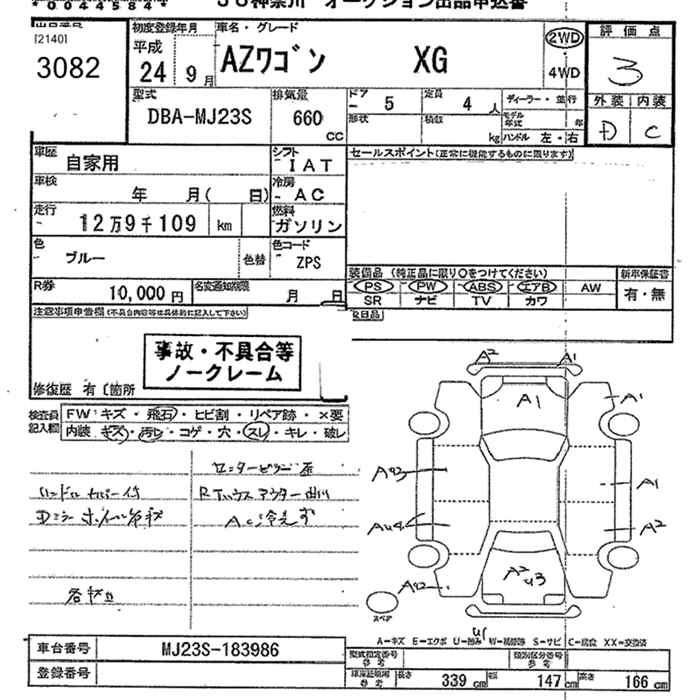 00445844 JU神奈川 オークション出品申込書
[2140]
3082
初度登録年月
平成
24 9月
車名・グレード
AZワゴン XG
2WD
4WD
評価点
3
外装 内装
D C
型式
DBA-MJ23S
排気量
660
CC
ドア 5
定員 4人
形状
積数 kg
ディーラー・並行
モデル年式 年
ハンドル 左・右
車歴
自家用
シフト
IAT
セールスポイント(正常に機能するものに限ります)
車検
年 月( 日)
冷房
AC
走行
12万9千109 km
燃料
ガソリン
色
ブルー
色替
色コード
ZPS
装備品 (純正品に限り○をつけてください)
新車保証書
PS PW ABS エアB AW
有・無
SR ナビ TV カワ
R券
10,000円
名変通知期限
月 日
注意事項申告欄(不具合内容等は具体的に記入して下さい)
事故・不具合等
ノークレーム
修復歴 有〔箇所
検査員記入欄
FW キズ・飛石・ヒビ割・リペア跡・×要
内装 キズ・汚レ・コゲ・穴・スレ・キレ・破レ
ハンドルカバー付
AC冷えず
A2 A1
A1
A1
A1
A2
スペア
A=キズ E=エクボ U=凹み W=補修跡 S=サビ C=腐食 XX=交換済
車台番号
MJ23S-183986
登録番号
型式指定番号
参考
類別区分番号
参考
車庫証明用
参考
長さ 339cm
幅 147cm
高さ 166cm